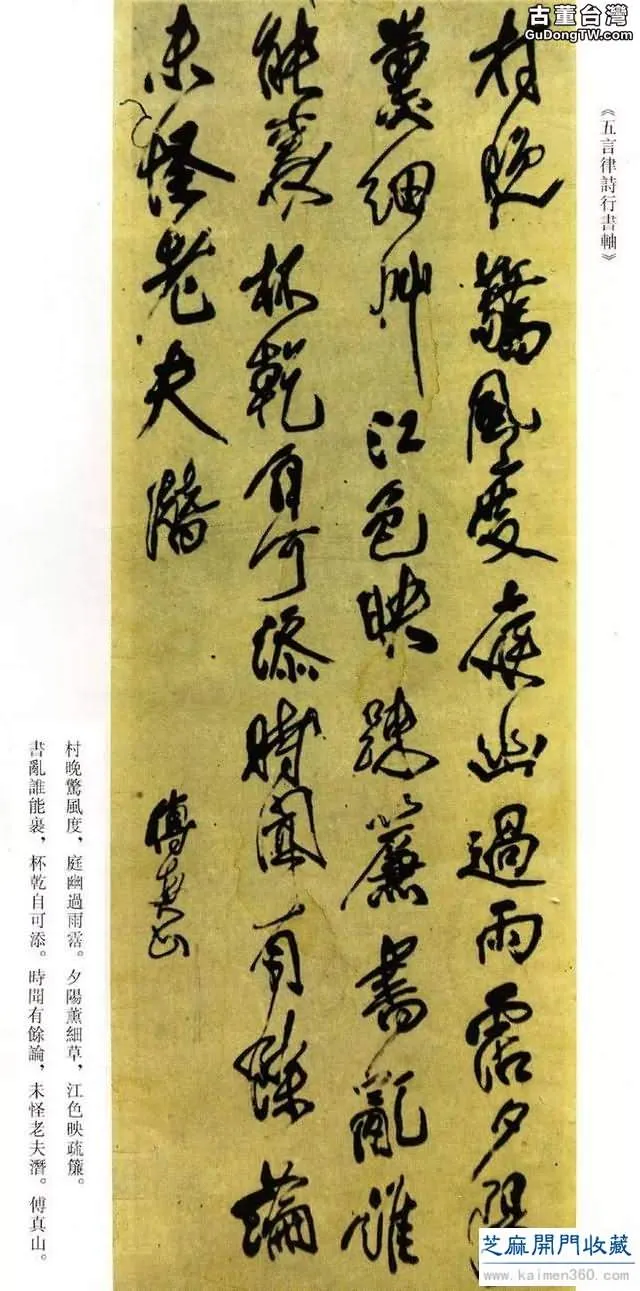 古董台灣
GuDongTW.com
《五言律詩行書軸》
村晚驚風度庭幽過雨霑夕陽
薰細草江色映疎簾書亂誰
能裹杯乾自可添時聞有餘論
未怪老夫潛
傅真山
村晚驚風度，庭幽過雨霑。夕陽薰細草，江色映疏簾。
書亂誰能裹，杯乾自可添。時聞有餘論，未怪老夫潛。傅真山。
芝麻開門收藏
www.kaimen360.com